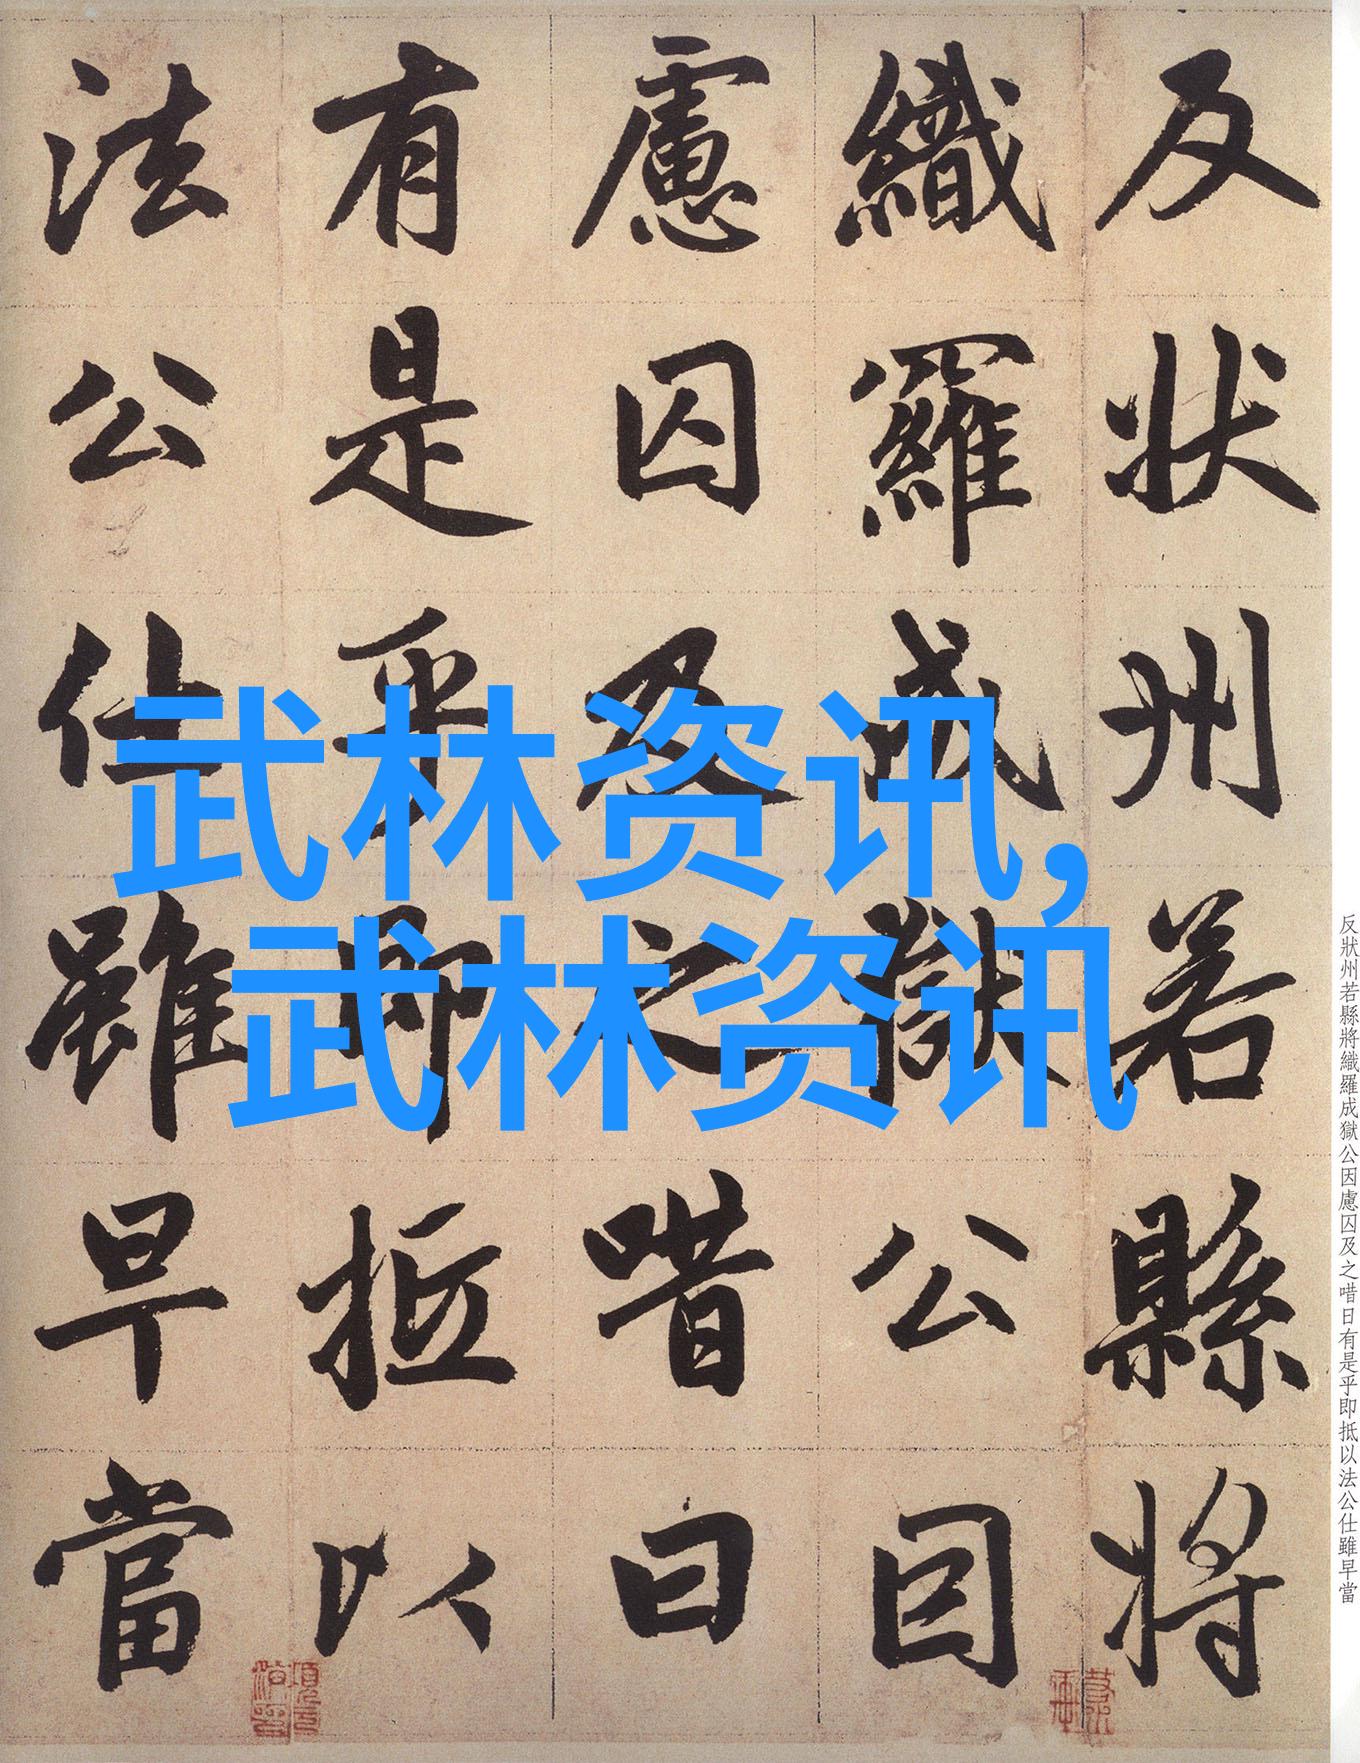 武林资讯,
武林资讯
反状州若縣將
織羅成獄公因
慮囚及之唶曰
有是乎即抵以
法公仕雖早當
反狀州若縣將織羅成獄公因慮囚及之唶日有是乎即抵以法公仕雖早當